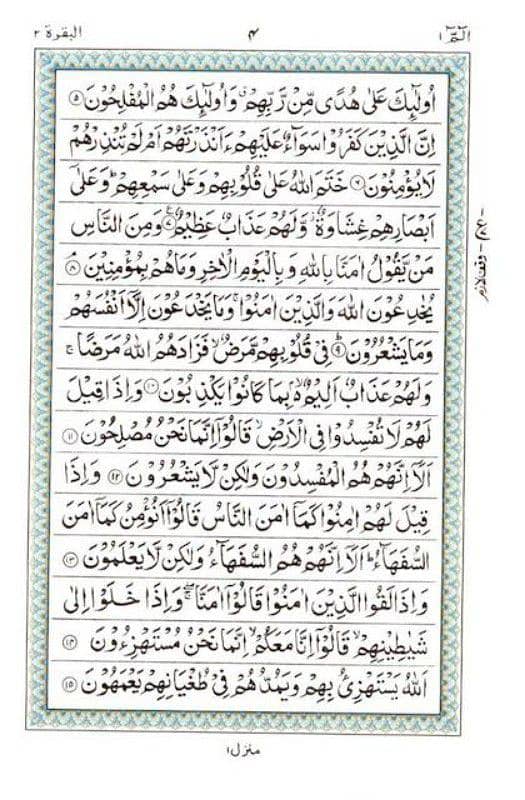 الٓمّٓ ۱ ۴ البقرة ۲
اُولٰٓئِكَ عَلٰى هُدًى مِّنْ رَّبِّهِمْ ۙ وَاُولٰٓئِكَ هُمُ الْمُفْلِحُوْنَ ۝۵
اِنَّ الَّذِيْنَ كَفَرُوْا سَوَآءٌ عَلَيْهِمْ ءَاَنْذَرْتَهُمْ اَمْ لَمْ تُنْذِرْهُمْ
لَا يُؤْمِنُوْنَ ۝۶ خَتَمَ اللّٰهُ عَلٰى قُلُوْبِهِمْ وَعَلٰى سَمْعِهِمْ ؕ وَعَلٰٓى
اَبْصَارِهِمْ غِشَاوَةٌ ؗ وَّلَهُمْ عَذَابٌ عَظِيْمٌ ۝۷ وَمِنَ النَّاسِ
مَنْ يَّقُوْلُ اٰمَنَّا بِاللّٰهِ وَبِالْيَوْمِ الْاٰخِرِ وَمَا هُمْ بِمُؤْمِنِيْنَ ۝۸
يُخٰدِعُوْنَ اللّٰهَ وَالَّذِيْنَ اٰمَنُوْا ۚ وَمَا يَخْدَعُوْنَ اِلَّآ اَنْفُسَهُمْ
وَمَا يَشْعُرُوْنَ ۝۹ فِيْ قُلُوْبِهِمْ مَّرَضٌ ۙ فَزَادَهُمُ اللّٰهُ مَرَضًا ۚ
وَلَهُمْ عَذَابٌ اَلِيْمٌۢ ۙ بِمَا كَانُوْا يَكْذِبُوْنَ ۝۱۰ وَاِذَا قِيْلَ
لَهُمْ لَا تُفْسِدُوْا فِي الْاَرْضِ ۙ قَالُوْٓا اِنَّمَا نَحْنُ مُصْلِحُوْنَ ۝۱۱
اَلَآ اِنَّهُمْ هُمُ الْمُفْسِدُوْنَ وَلٰكِنْ لَّا يَشْعُرُوْنَ ۝۱۲ وَاِذَا
قِيْلَ لَهُمْ اٰمِنُوْا كَمَآ اٰمَنَ النَّاسُ قَالُوْٓا اَنُؤْمِنُ كَمَآ اٰمَنَ
السُّفَهَآءُ ؕ اَلَآ اِنَّهُمْ هُمُ السُّفَهَآءُ وَلٰكِنْ لَّا يَعْلَمُوْنَ ۝۱۳
وَاِذَا لَقُوا الَّذِيْنَ اٰمَنُوْا قَالُوْٓا اٰمَنَّا ۖۚ وَاِذَا خَلَوْا اِلٰى
شَيٰطِيْنِهِمْ ۙ قَالُوْٓا اِنَّا مَعَكُمْ ۙ اِنَّمَا نَحْنُ مُسْتَهْزِءُوْنَ ۝۱۴
اَللّٰهُ يَسْتَهْزِئُ بِهِمْ وَيَمُدُّهُمْ فِيْ طُغْيَانِهِمْ يَعْمَهُوْنَ ۝۱۵
وقف لازم
منزل ۱